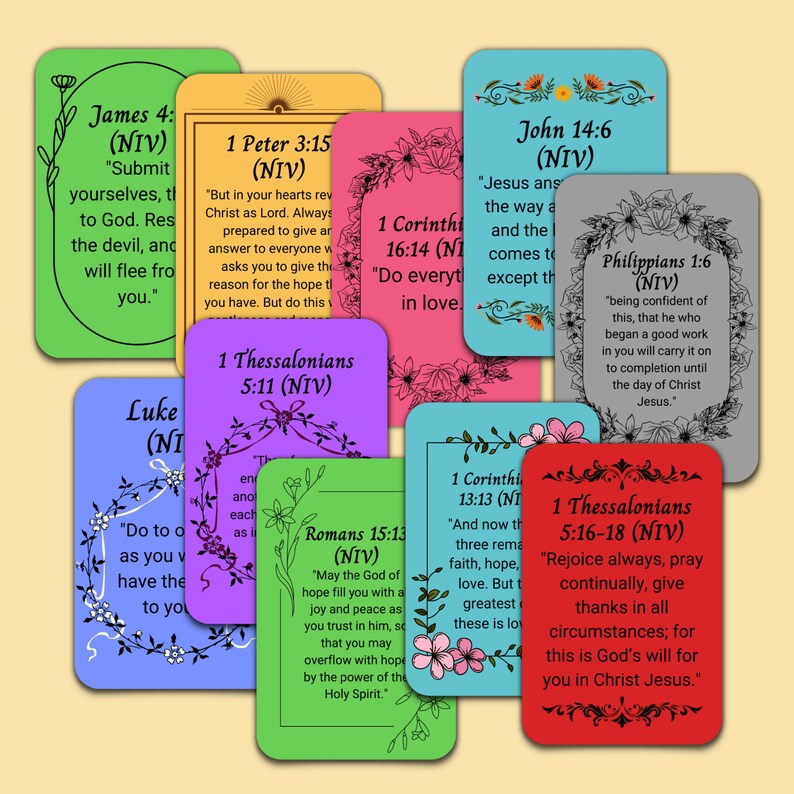 James 4:
(NIV)
"Submit
yourselves,
to God.
the devil, and
will flee
you."
1 Peter 3:15
(NIV)
"But in your hearts
Christ as Lord. Always
prepared to give
answer to everyone
asks you to give the
reason for the hope
you have. But do this
1
16:14
"Do
in love.
John 14:6
(NIV)
"Jesus
the way
and the
comes to
except
Philippians 1:6
(NIV)
"being confident of
this, that he who
began a good work
in you will carry it on
to completion until
the day of Christ
Jesus."
1 Thessalonians
5:11 (NIV)
each
as
Luke
"Do to
as you
have
to
Romans 15:13
(NIV)
"May the God of
hope fill you with
joy and peace as
you trust in him,
that you may
overflow with hope
by the power of the
Holy Spirit."
1
13:13
"And now
three
faith, hope,
love. But
greatest
these is
1 Thessalonians
5:16-18 (NIV)
"Rejoice always, pray
continually, give
thanks in all
circumstances; for
this is God's will for
you in Christ Jesus."